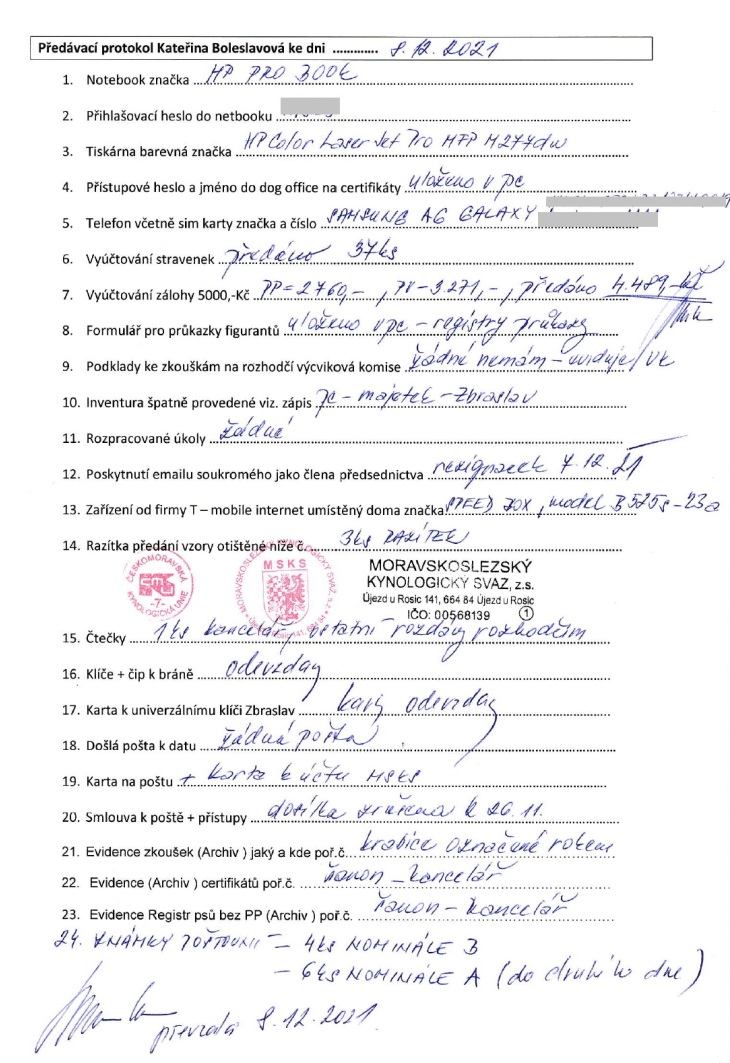 Předávací protokol Kateřina Boleslavová ke dni .............. 8.12.2021
1. Notebook značka HP PRO BOOK
2. Přihlašovací heslo do netbooku
3. Tiskárna barevná značka HP Color Laser Jet Pro MFP M277dw
4. Přístupové heslo a jméno do dog office na certifikáty uloženo v pc
5. Telefon včetně sim karty značka a číslo SAMSUNG A6 GALAXY
6. Vyúčtování stravenek předáno 37ks
7. Vyúčtování zálohy 5000,-Kč PP=2760,- , PV-3.271,- , předáno 4.489,-Kč
8. Formulář pro průkazky figurantů uloženo v pc - registry průkazy
9. Podklady ke zkouškám na rozhodčí výcviková komise žádné nemám - eviduje VK
10. Inventura špatně provedené viz. zápis pc - majetek - Zbraslav
11. Rozpracované úkoly žádné
12. Poskytnutí emailu soukromého jako člena předsednictva 7.12.21
13. Zařízení od firmy T – mobile internet umístěný doma značka SPEED BOX, model B525s-23a
14. Razítka předání vzory otištěné níže č. 3ks RAZÍTEK
ČESKOMORAVSKÁ KYNOLOGICKÁ UNIE
-7-
MORAVSKOSLEZSKÝ KYNOLOGICKÝ SVAZ, z.s.
MSKS
MORAVSKOSLEZSKÝ
KYNOLOGICKÝ SVAZ, z.s.
Újezd u Rosic 141, 664 84 Újezd u Rosic
IČO: 00568139 1
15. Čtečky 1ks kancelář, ostatní - rozdány rozhodčím
16. Klíče + čip k bráně odevzdány
17. Karta k univerzálnímu klíči Zbraslav karty odevzdány
18. Došlá pošta k datu žádná pošta
19. Karta na poštu + karta k účtu MSKS
20. Smlouva k poště + přístupy dosílka zrušena k 26.11.
21. Evidence zkoušek (Archiv ) jaký a kde poř.č. krabice označené rokem
22. Evidence (Archiv ) certifikátů poř.č. šanon - kancelář
23. Evidence Registr psů bez PP (Archiv ) poř.č. šanon - kancelář
24. ZNÁMKY POŠTOVNÍ - 4ks NOMINÁLE B
- 6ks NOMINÁLE A (do druhého dne)
převzala 8.12.2021